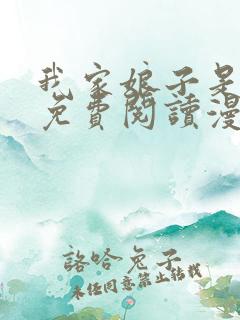 我家娘子是
免費閱讀漫
詻哈兔子
未經同意禁止转載